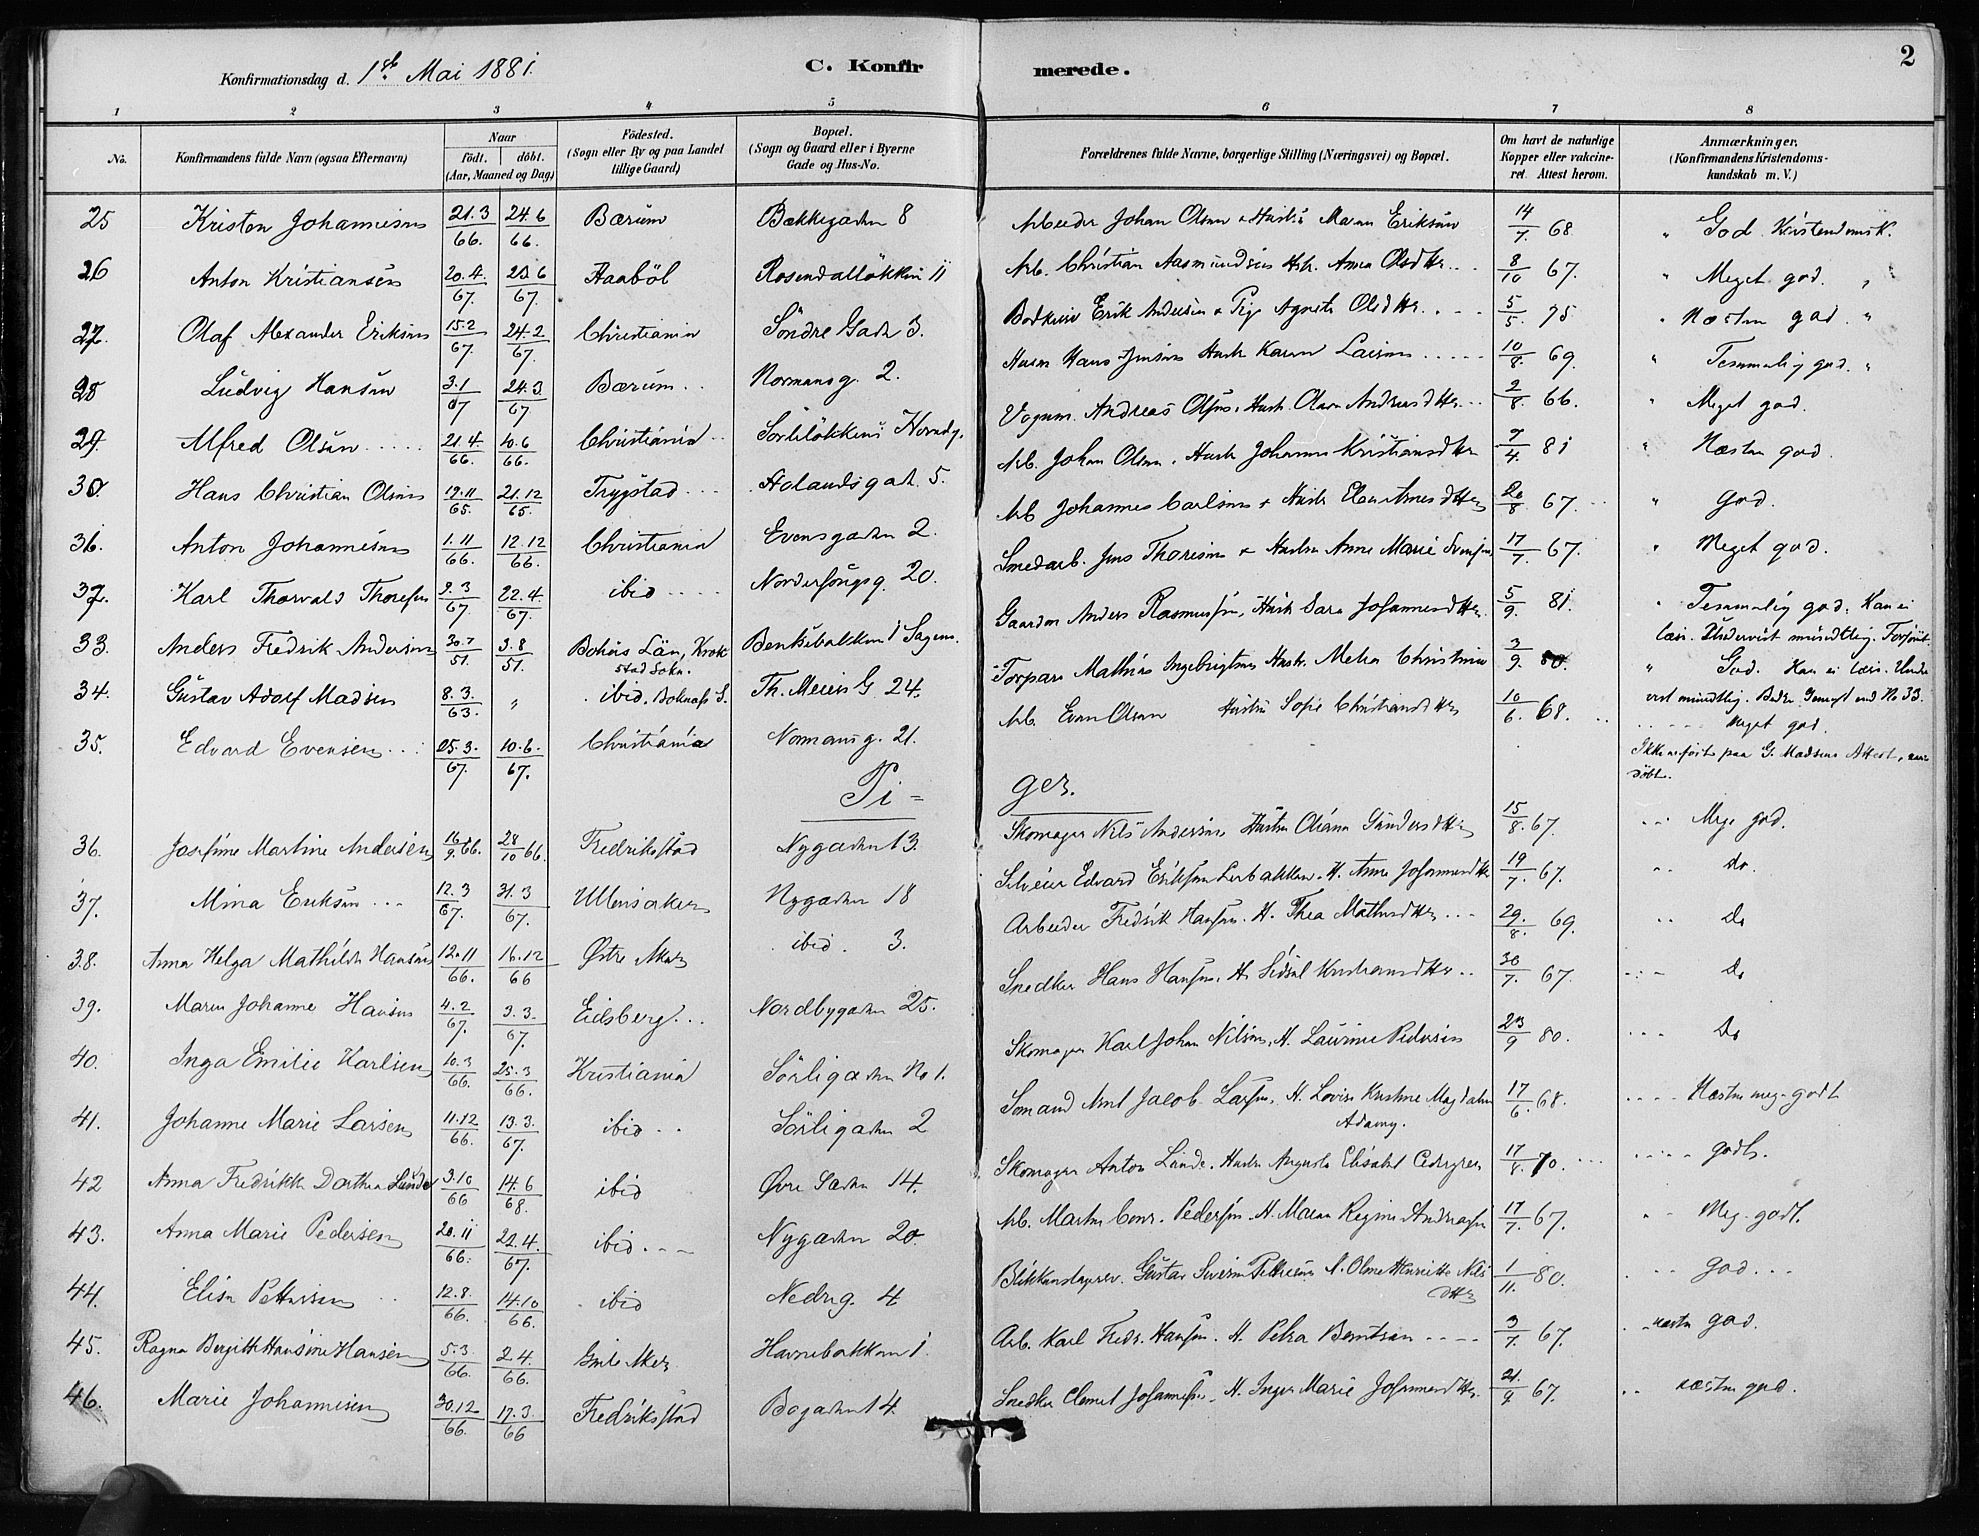 2
Konfirmationsdag d. 1ste Mai 1881.
C. Konfirmerede.
1 2 3 4 5 6 7 8
No.
Konfirmandens fulde Navn (ogsaa Efternavn)
Naar
födt. döbt.
(Aar, Maaned og Dag)
Födested.
(Sogn eller By og paa Landet
tillige Gaard)
Bopæl.
(Sogn og Gaard eller i Byerne
Gade og Hus-No.
Forældrenes fulde Navne, borgerlige Stilling (Næringsvei) og Bopæl.
Om havt de naturlige
Kopper eller vakcine-
ret. Attest herom.
Anmærkninger.
(Konfirmandens Kristendoms-
kundskab m. V.)
25 Kristen Johannesen 21.3 66. 24.6 66. Bærum Bækkegaden 8 Arbeider Johan Olsen & Hustru Maren Eriksen 14/7 68 " God Kristendomsk.
26 Anton Kristiansen 20.4. 67. 23.6 67. Haaböl Rosendalløkken 11 Arb. Christian Aasmundsen Hstr. Anna Olsdtter 8/10 67. " Meget god. "
27. Olaf Alexander Eriksen 15.2 67. 24.2 67. Christiania Söndre Gade 3. Erik Andersen & Pige Agnete Olsdtter 5/5. 75 " Næsten god. "
28 Ludvig Hansen 3.1 67 24.3 67 Bærum Normansg. 2. Husm Hans Jensen Hustr Karen Larsen 10/8. 69. " Temmelig god. "
29. Alfred Olsen 21.4. 66. 10.6 66. Christiania Sørliløkkens Hovedg. Vognm. Andreas Olsen, Hustr. Olava Andreasdtter 2/8. 66. " Meget god.
30. Hans Christian Olsen 19.11 65. 21.12 65. Trygstad Holandsgad. 5. Arb. Johan Olsen, Hustr Johanne Kristiansdtter 7/4. 81 " Næsten god.
31. Anton Johannesen 1.11 66. 12.12 66. Christiania Evensgaden 2. Arb Johannes Carlsen & Hustr Elen Arnesdtter 20/8 67. " god.
32. Karl Thorvald Thoresen 9.3 67 22.4. 67. ibid Norderhougsg. 20. Smedarb. Jens Thoresen & Hustru Anne Marie Svensen 17/7 67. " Meget god.
33. Anders Fredrik Andersen 30.7 51. 3.8 51. Bohus Län, Krokstad Sokn. Benkebakken 1 Sagene. Gaardm Anders Rasmussen, Hustr Sara Johannesdtter 5/9. 81. " Temmelig god. Kan ei
læse. Undervist mundtlig.
34. Gustav Adolf Madsen 8.3. 63. " ibid, S. Th. Meiers G 24. Torpare Mathias Ingebrigtsen Hustr. Metea Christine 3/9. 80. " God. Kan ei læse. Under
vist mundtlig. No 33.
35. Edvard Evensen 25.3. 67. 10.6. 67. Christiania Normansg. 21. Arb. Even Olsen Hustru Sofie Christiansdtter 10/6. 68. Meget god.
Ikke anført paa G. Madsens Attest, naar
döbt.
Piger.
36. Josefine Martine Andersen 16/9 66. 28/10 66. Fredriksstad Nygaden 13. Skomager Nils Andersen Hustru Oliana Gundersdtter 15/8. 67. " Mege god.
37. Mina Eriksen 12.3 67. 31.3 67. Ullensaker Nygaden 18 Edvard Eriksen Lerbakken. H. Anne Johannesdtter 19/7. 67. " do
38. Anna Helga Mathilde Hansen 12.11 66. 16.12 66 Østre Aker ibid. 3. Arbeider Fredrik Hansen. H. Thea Mathisdtter 29/8. 69. " Do
39. Maren Johanne Hansen 4.2 67. 3.3. 67. Eidsberg Nordbygaden 25. Snedker Hans Hansen, H. Sidsel Kristiansdtter 30/7. 67. " Do
40. Inga Emilie Karlsen 10.3 66. 25.3 66. Kristiania Sörligaden No 1. Skomager Karl Johan Nilsen, H. Laurine Pedersen 23/9 80. " Do
41. Johanne Marie Larsen 11.12 66. 13.3. 67. ibid Sörligaden 2 Sømand Arnt Jacob Larsen, H. Lovise Kristine Magdalena
Adamsg. 17/6. 68. " Næsten meg. godt
42 Anna Fredrikke Dorthea Lunde 3.10 66 14.6 68. ibid Øvre Gaden 14. Skomager Anton Lunde. Hustru Augusta Elisabet Cedergren 17/8. 70. " godt.
43. Anna Marie Pedersen 20.11 66. 22.4. 67. ibid Nygaden 20. Arb. Martin Conr. Pedersen. H. Maren Regine Andreasen 17/7. 67. " Meg. godt.
44. Elise Pettersen 12.8. 66. 14.10 66. ibid Nedreg. 4 Blikkenslagersv. Gustav Severin Pettersen H. Oline Henriette Nils
dtter 1/11. 80. " god.
45. Ragna Birgitte Hansine Hansen 5.3. 66. 2.4. 66. Aker Havnebakken 1. Arb. Karl Fredr. Hansen. H. Petra Berntsen 3/7. 67. " næsten god.
46. Marie Johannesen 30.12 66. 17.3. 66 Fredriksstad Bogaden 14. Snedker Clemet Johannesen. H. Inger Marie Johannesdtter 21/9 67. " næsten god.